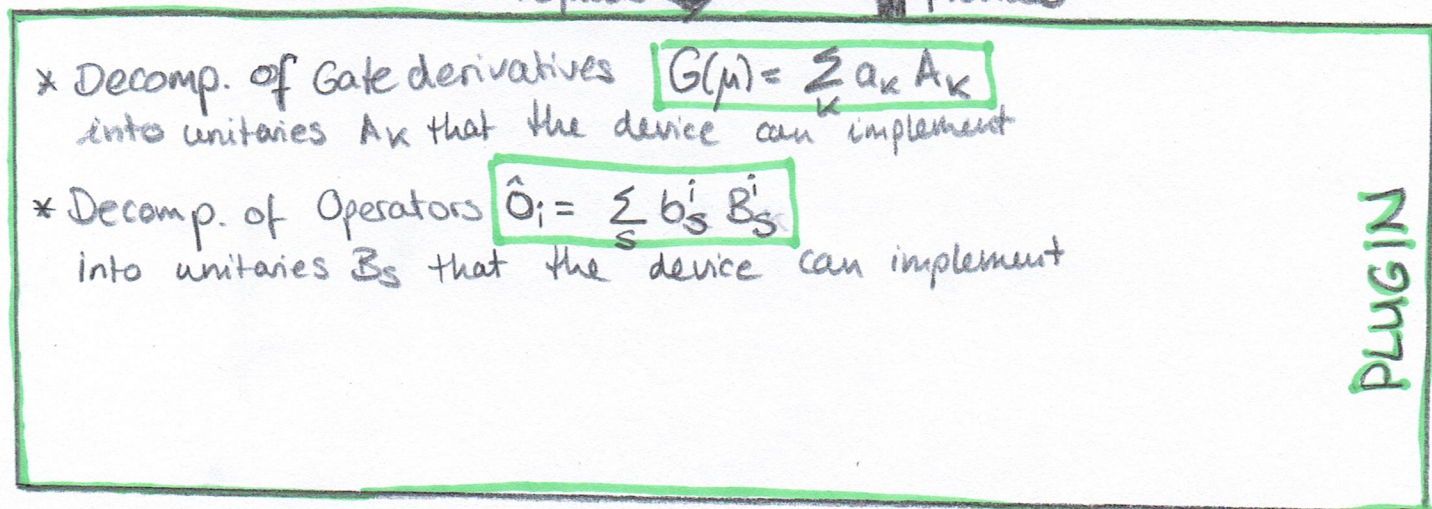 * Decomp. of Gate derivatives G(μ) = Σ_k a_k A_k
into unitaries A_k that the device can implement
* Decomp. of Operators Ô_i = Σ_s b_s^i B_s^i
into unitaries B_s that the device can implement
PLUGIN